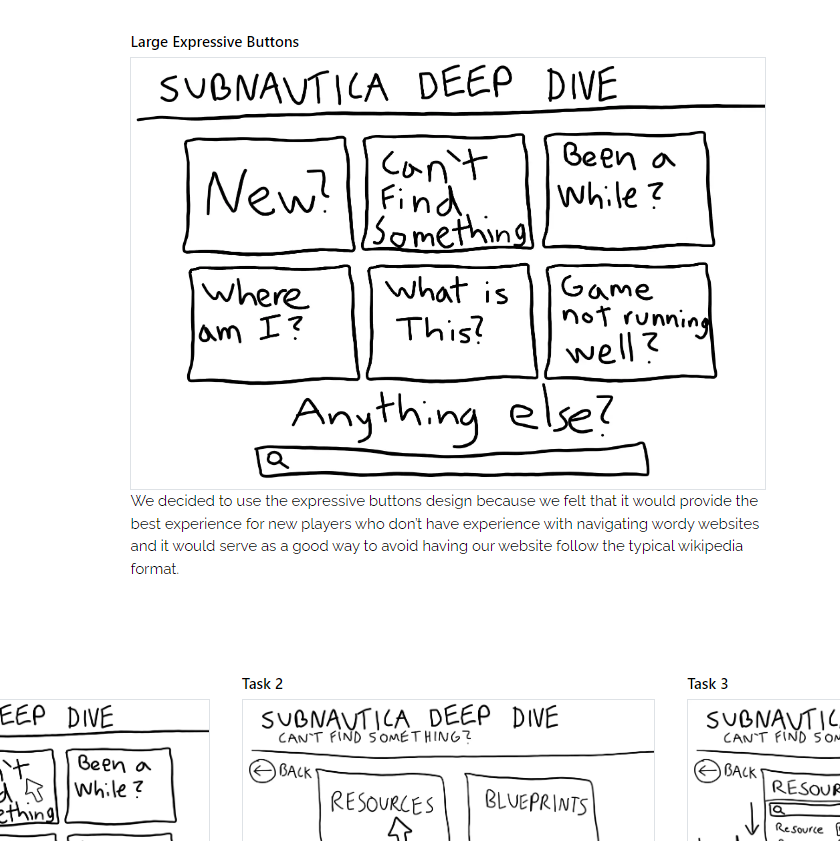 Large Expressive Buttons
SUBNAUTICA DEEP DIVE
New?
Can't
Find
Something
Been a
While?
Where
am I?
What is
This?
Game
not running
well?
Anything else?
We decided to use the expressive buttons design because we felt that it would provide the
best experience for new players who don't have experience with navigating wordy websites
and it would serve as a good way to avoid having our website follow the typical wikipedia
format.
EEP DIVE
Been a
While?
ething
Task 2
SUBNAUTICA DEEP DIVE
CAN'T FIND SOMETHING?
BACK
RESOURCES
BLUEPRINTS
Task 3
SUBNAUTIC
CAN'T FIND SOM
BACK
RESOUR
Resource